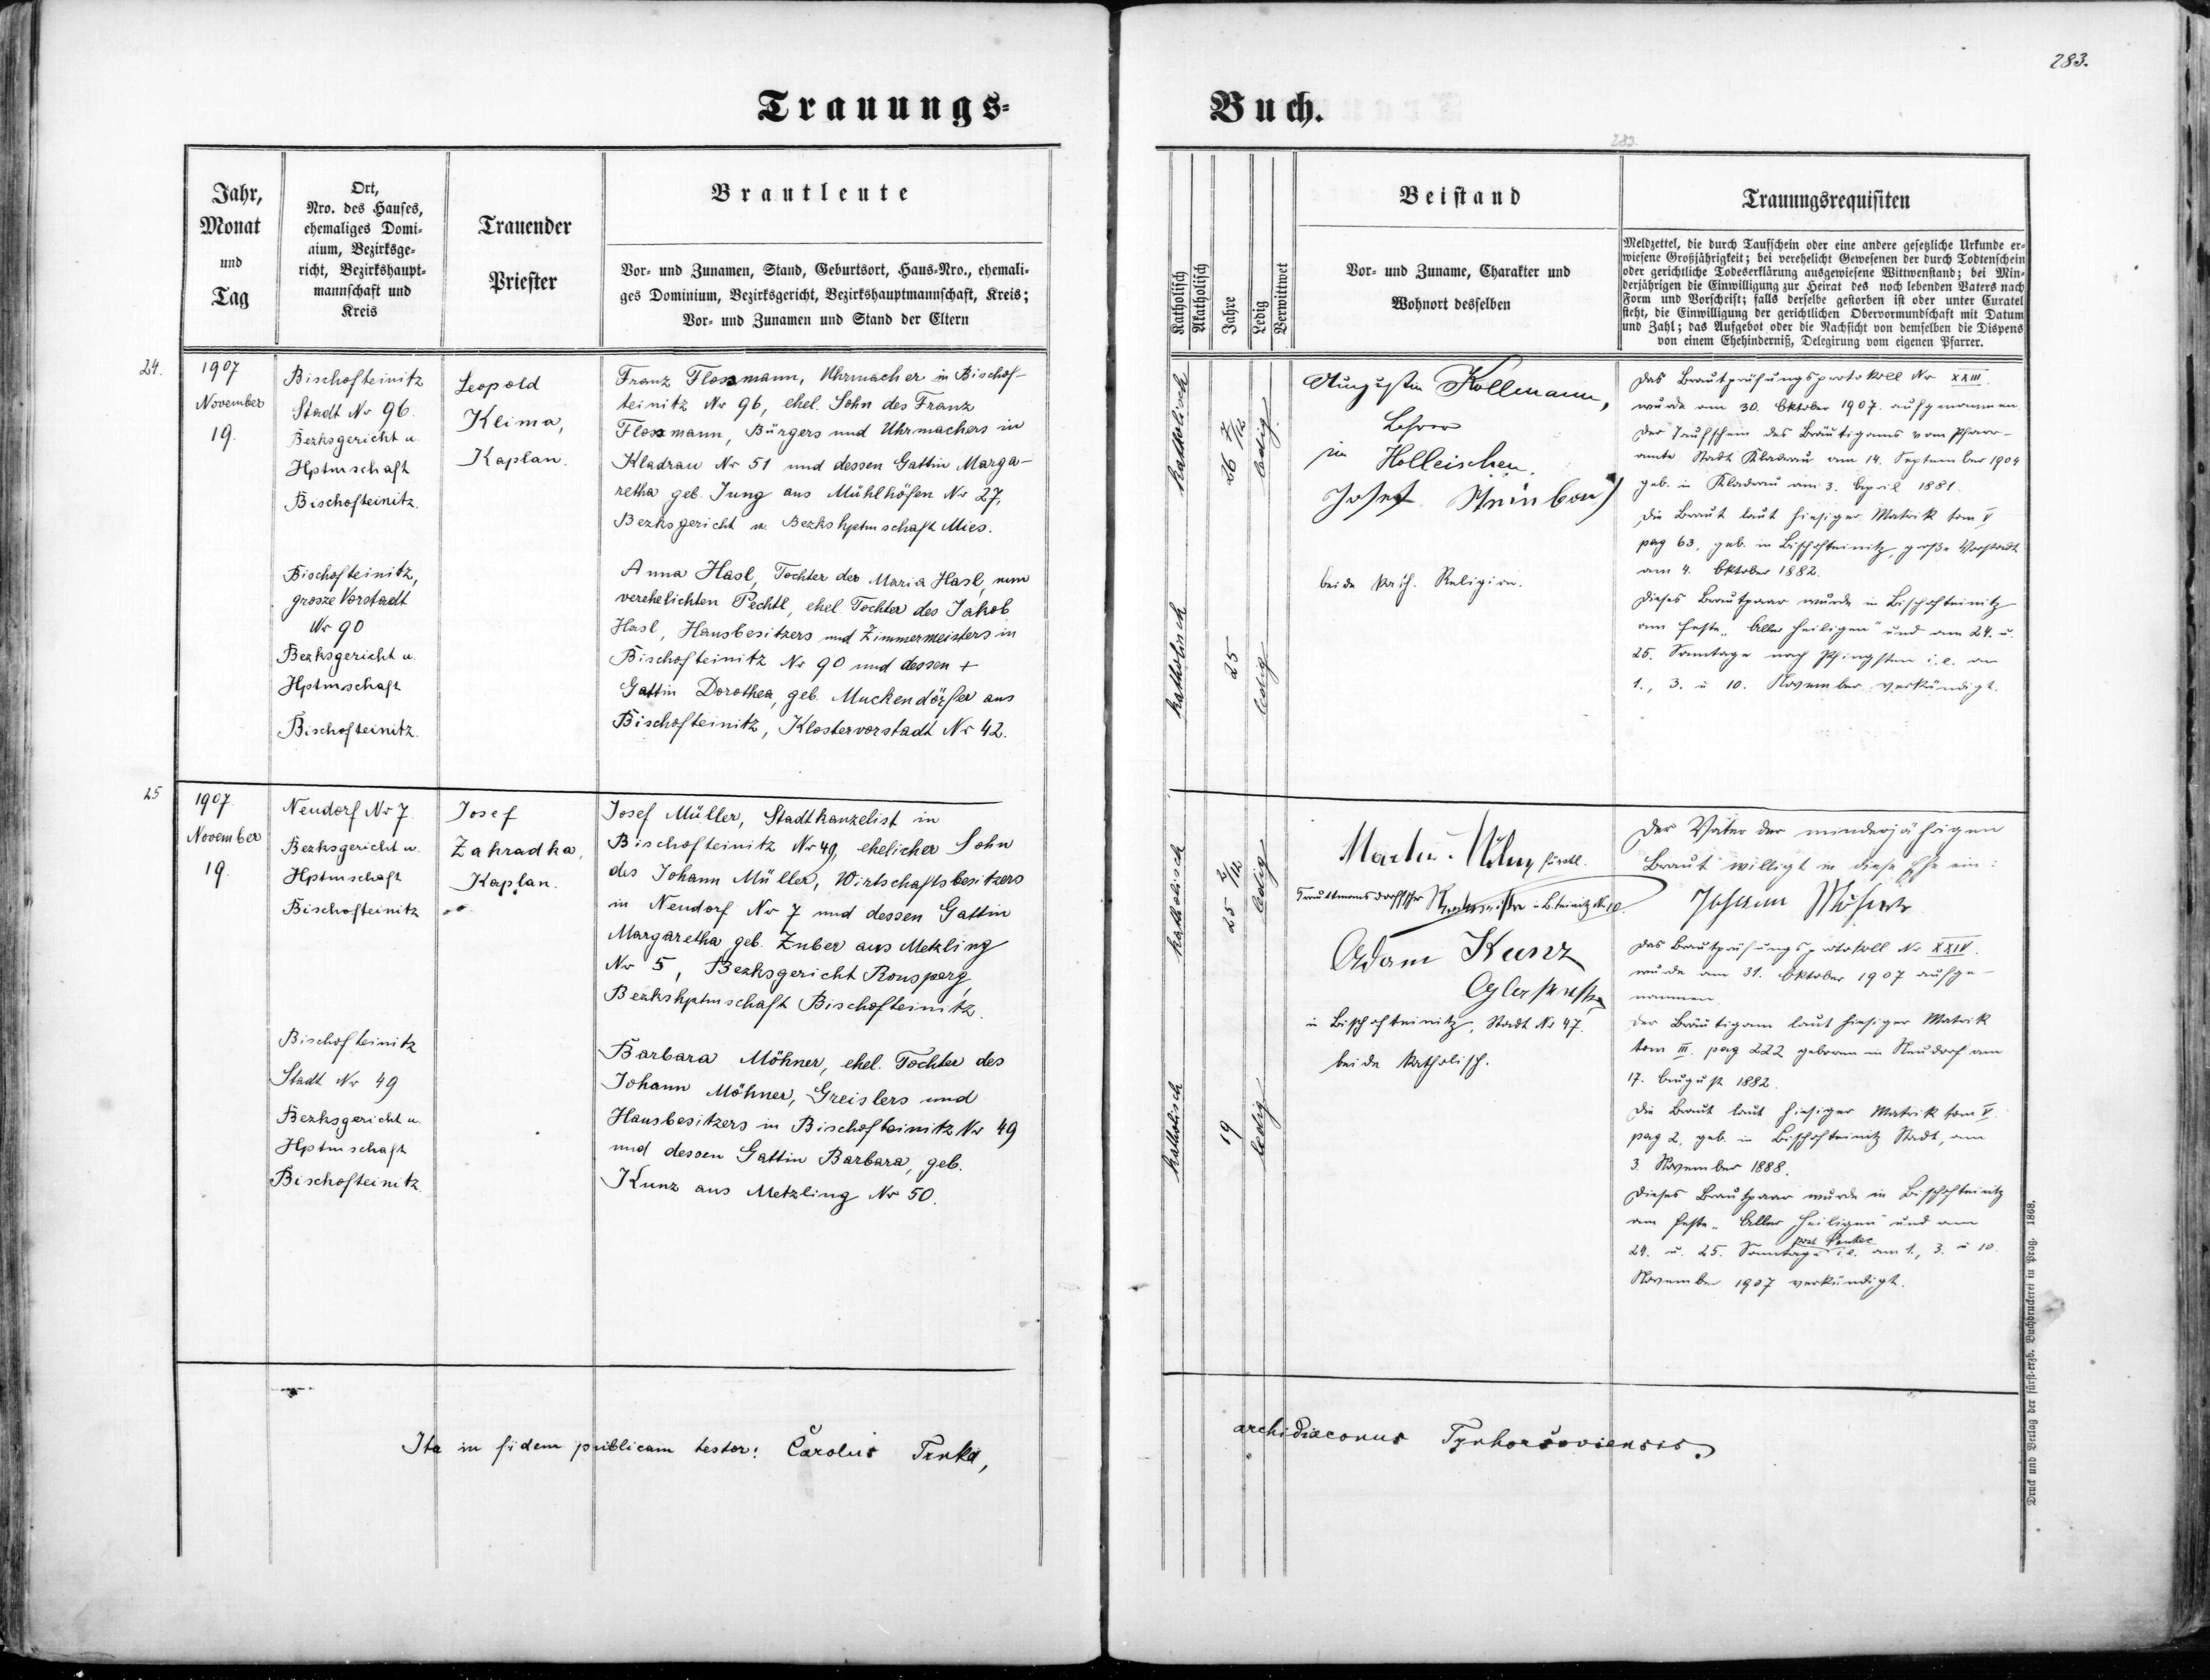 283.
Trauungs-
Buch.
283.
Jahr,
Monat
und
Tag
Ort,
Nro. des Hauses,
ehemaliges Domi-
nium, Bezirksge-
richt, Bezirkshaupt-
mannschaft und
Kreis
Trauender
Priester
Brautleute
Vor- und Zunamen, Stand, Geburtsort, Haus-Nro., ehemali-
ges Dominium, Bezirksgericht, Bezirkshauptmannschaft, Kreis;
Vor- und Zunamen und Stand der Eltern
Katholisch
Akatholisch
Jahre
Ledig
Verwittwet
Beistand
Vor- und Zuname, Charakter und
Wohnort desselben
Trauungsrequisiten
Meldzettel, die durch Taufschein oder eine andere gesetzliche Urkunde er-
wiesene Großjährigkeit; bei verehelicht Gewesenen der durch Todtenschein
oder gerichtliche Todeserklärung ausgewiesene Wittwenstand; bei Min-
derjährigen die Einwilligung zur Heirat des noch lebenden Vaters nach
Form und Vorschrift; falls derselbe gestorben ist oder unter Curatel
steht, die Einwilligung der gerichtlichen Obervormundschaft mit Datum
und Zahl; das Aufgebot oder die Nachsicht von demselben die Dispens
von einem Ehehinderniß, Delegirung vom eigenen Pfarrer.
24.
1907
November
19.
Bischofteinitz
Stadt Nr 96.
Bezksgericht u.
Hptmschaft
Bischofteinitz.
Leopold
Klima,
Kaplan.
Franz Flossmann, Uhrmacher in Bischof-
teinitz Nr 96, ehel. Sohn des Franz
Flossmann, Bürgers und Uhrmachers in
Kladrau Nr 51 und dessen Gattin Marga-
retha geb. Jung aus Mühlhöfen Nr 27,
Bezksgericht u. Bezkshptmschaft Mies.
katholisch
26 7/12
ledig
Augustin Kollmann,
Lehrer
in Holleischen.
Josef
beide kath. Religion.
Das Brautprüfungsprotokoll Nr XXIII.
wurde am 30. Oktober 1907. aufgenommen
Der Taufschein des Bräutigams vom Pfarr-
amte Stadt Kladrau am 14. September 1904
geb. in Kladrau am 3. April 1881.
Die Braut laut hiesiger Matrik tom V
pag 63, geb. in Bischofteinitz, große Vorstadt
am 4. Oktober 1882.
Dieses Brautpaar wurde in Bischofteinitz
am Feste „Aller Heiligen" und am 24. u.
25. Sonntage nach Pfingsten i. e. am
1., 3. u 10. November verkündigt.
Bischofteinitz,
grosze Vorstadt
Nr 90
Bezksgericht u.
Hptmschaft
Bischofteinitz.
Anna Hasl, Tochter der Maria Hasl, nun
verehelichten Pechtl, ehel Tochter des Jakob
Hasl, Hausbesitzers und Zimmermeisters in
Bischofteinitz Nr 90 und dessen +
Gattin Dorothea, geb. Muckendörfer aus
Bischofteinitz, Klostervorstadt Nr 42.
katholisch
25
ledig
25
1907
November
19.
Neudorf Nr 7.
Bezksgericht u.
Hptmschaft
Bischofteinitz
Josef
Zahradka,
Kaplan.
Josef Müller, Stadtkanzelist in
Bischofteinitz Nr 49, ehelicher Sohn
des Johann Müller, Wirtschaftsbesitzers
in Neudorf Nr 7 und dessen Gattin
Margaretha geb. Zuber aus Metzling
Nr 5, Bezksgericht Ronsperg,
Bezkshptmschaft Bischofteinitz.
katholisch
25 2/12
ledig
Martin fürstl.
Adam Kunz
in Bischofteinitz, Stadt Nr 47.
beide katholisch.
Der Vater der minderjährigen
Braut willigt in diese Ehe ein:
Johann Möhner
Das Brautprüfungsprotokoll Nr XXIV.
wurde am 31. Oktober 1907 aufge-
nommen.
Der Bräutigam laut hiesiger Matrik
tom III. pag 222 geboren in Neudorf am
17. August 1882.
Die Braut laut hiesiger Matrik tom V.
pag 2, geb. in Bischofteinitz Stadt, am
3. November 1888.
Dieses Brautpaar wurde in Bischofteinitz
am Feste „Aller Heiligen" und am
24. u. 25. Sonntage post Pentec i. e. am 1., 3. u 10.
November 1907 verkündigt.
Bischofteinitz
Stadt Nr 49
Bezksgericht u.
Hptmschaft
Bischofteinitz.
Barbara Möhner, ehel. Tochter des
Johann Möhner, Greislers und
Hausbesitzers in Bischofteinitz Nr 49
und dessen Gattin Barbara, geb.
Kunz aus Metzling Nr 50.
katholisch
19
ledig
Ita in fidem publicam testor: Carolus Trnka,
archidiaconus Tynhoršoviensis.
Druck und Verlag der fürst-erzb. Buchdruckerei in Prag. 1868.